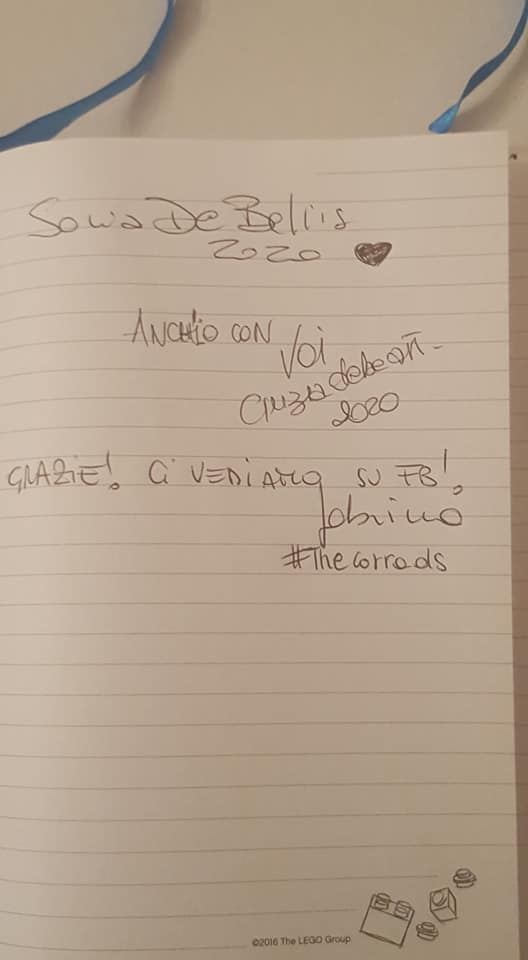 Sonia De Bellis
2020
ANCH'IO CON VOI
2020
GRAZIE! CI VEDIAMO SU FB!
Fabrizio
#Thecorrads
©2016 The LEGO Group.